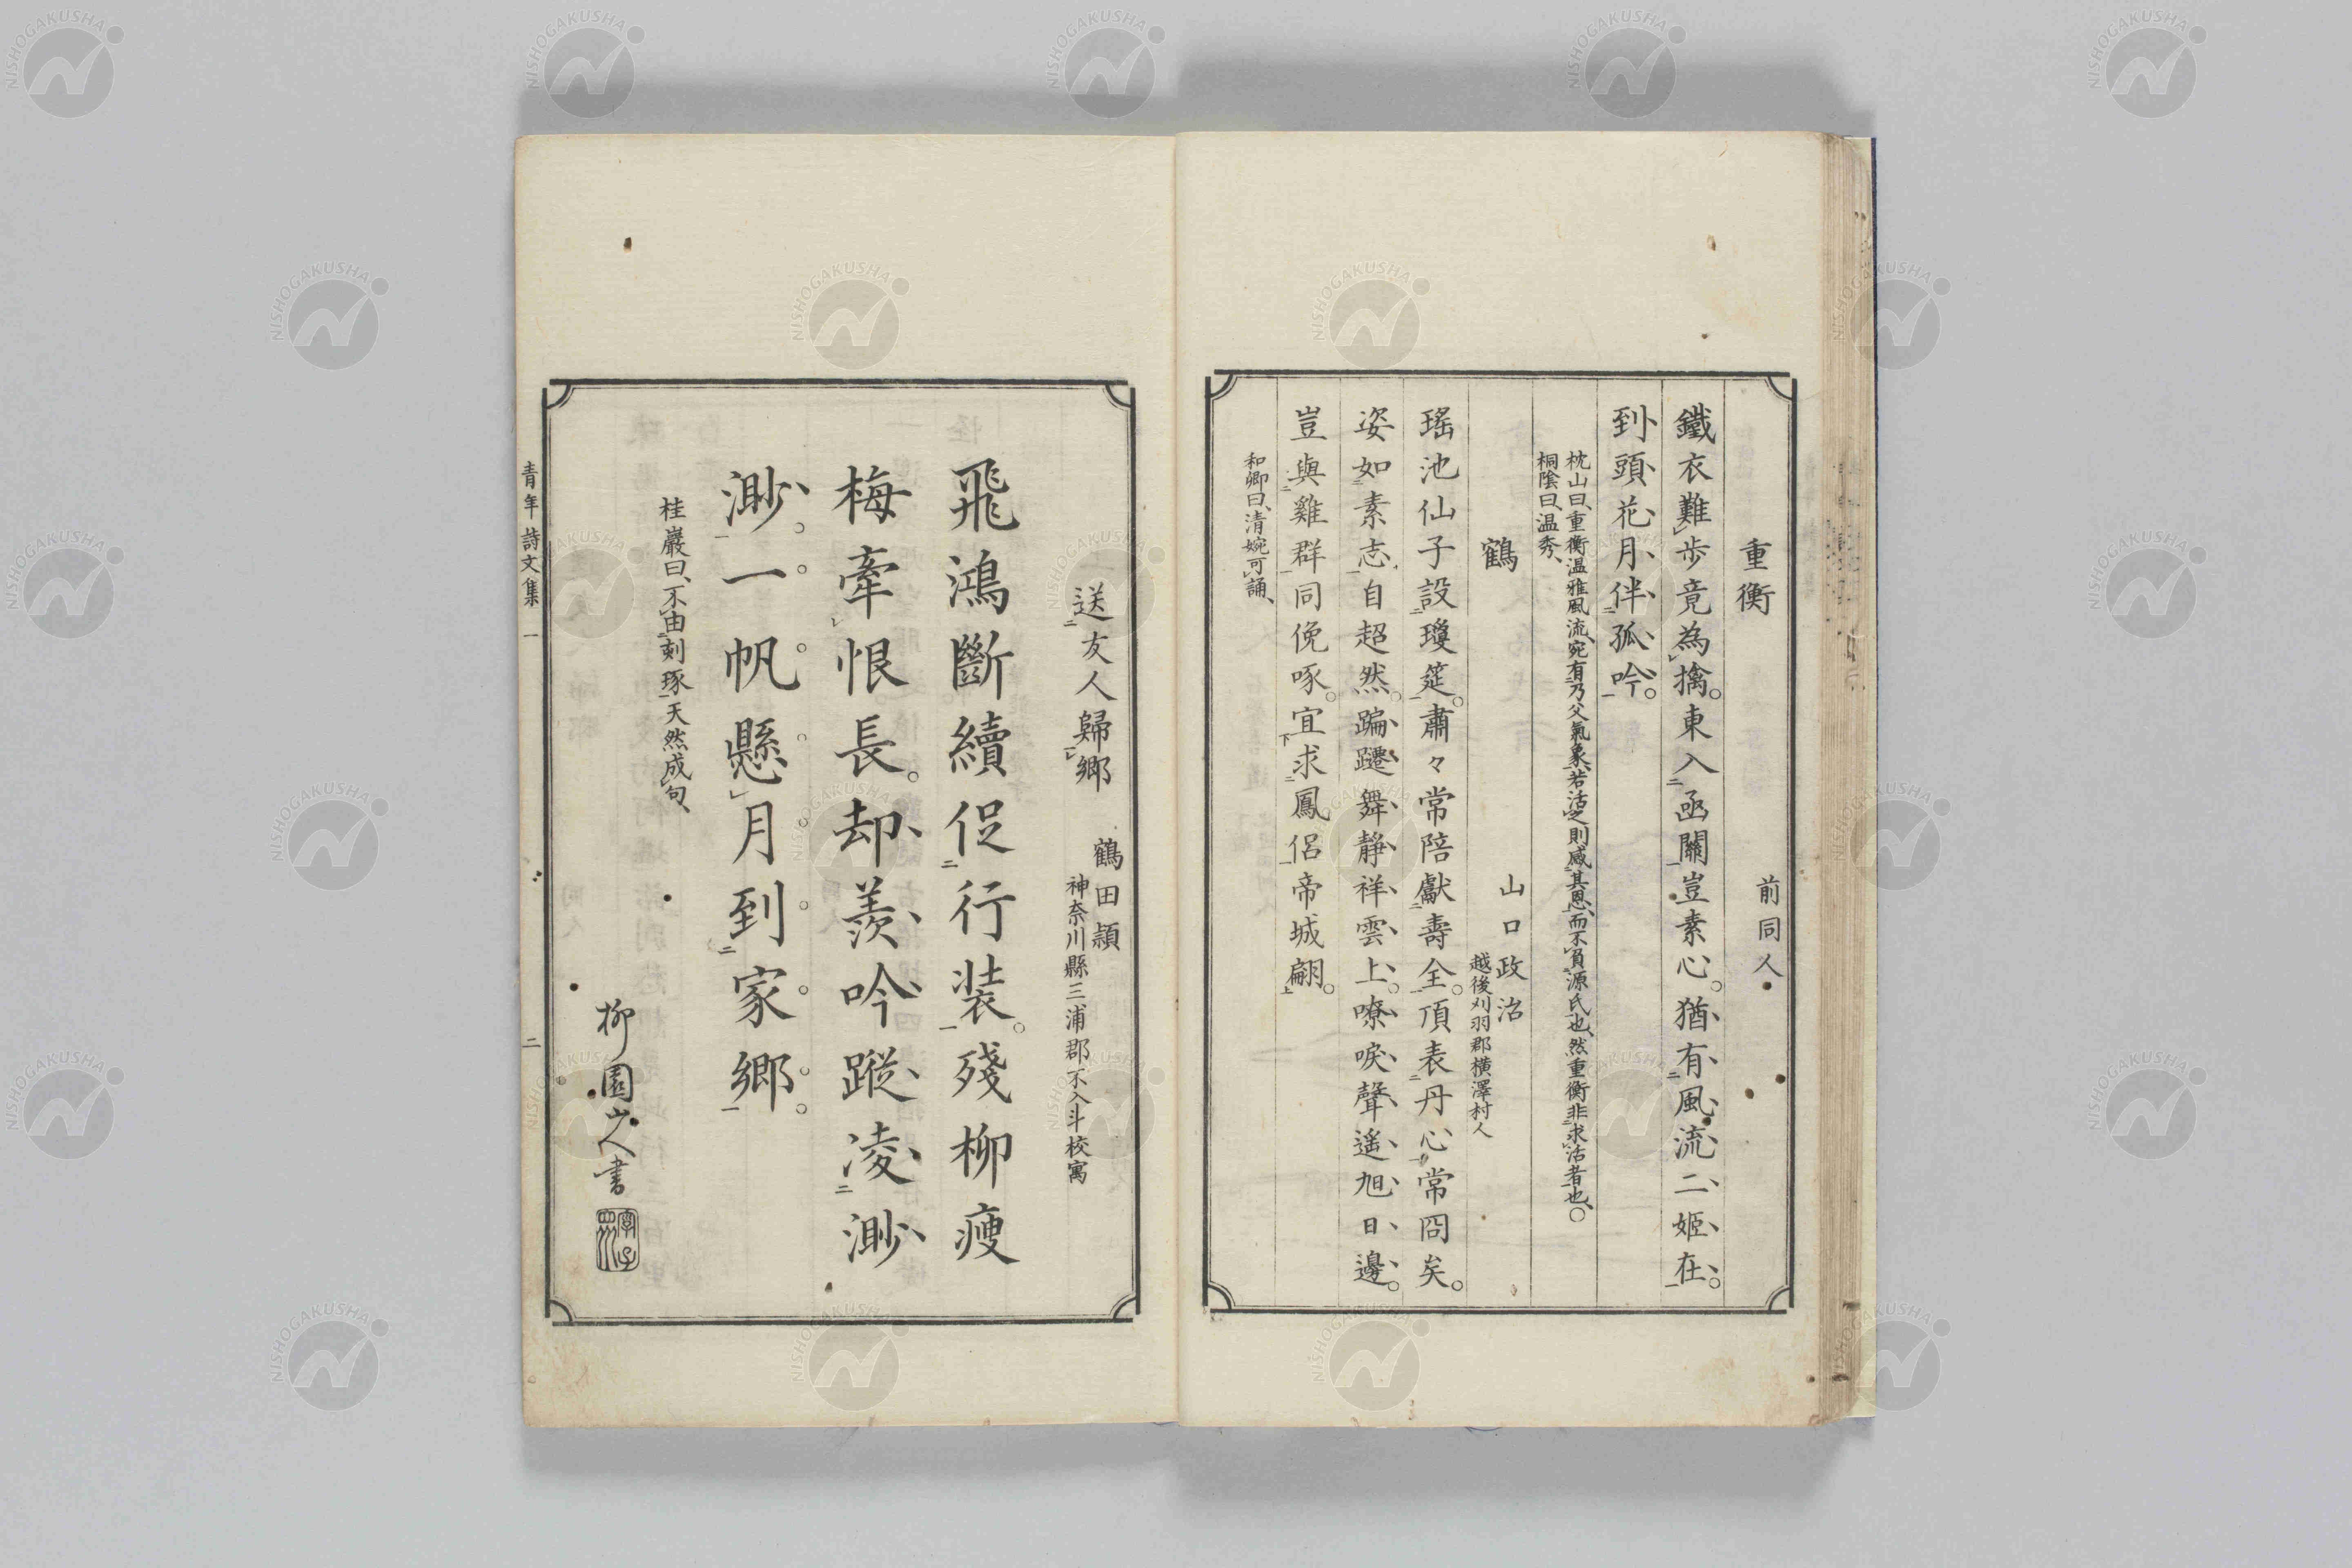 重衡
前同人
鐵衣難歩竟為擒。東入函關豈素心。猶有風流二姬在。
到頭花月伴孤吟。
枕山曰、重衡温雅風流、宛有乃父氣象、若活之則感其恩、而不負源氏也、然重衡非求活者也、○
桐陰曰、温秀、
鶴
山口政治
越後刈羽郡横澤村人
瑤池仙子設瓊筵。肅々常陪獻壽全。頂表丹心常冏矣。
姿如素志自超然。蹁躚舞靜祥雲上。嘹唳聲遙旭日邊。
豈與雞群同俛啄。宜求鳳侶帝城翩。
和卿曰、清婉可誦、
送友人歸鄉
鶴田頴
神奈川縣三浦郡不入斗校寓
飛鴻斷續促行装。殘柳瘦
梅牽恨長。却羨吟蹤凌渺
渺。一帆懸月到家鄉。
桂巖曰、不由刻琢、天然成句、
柳園山人書
青年詩文集 一
二
NISHOGAKUSHA